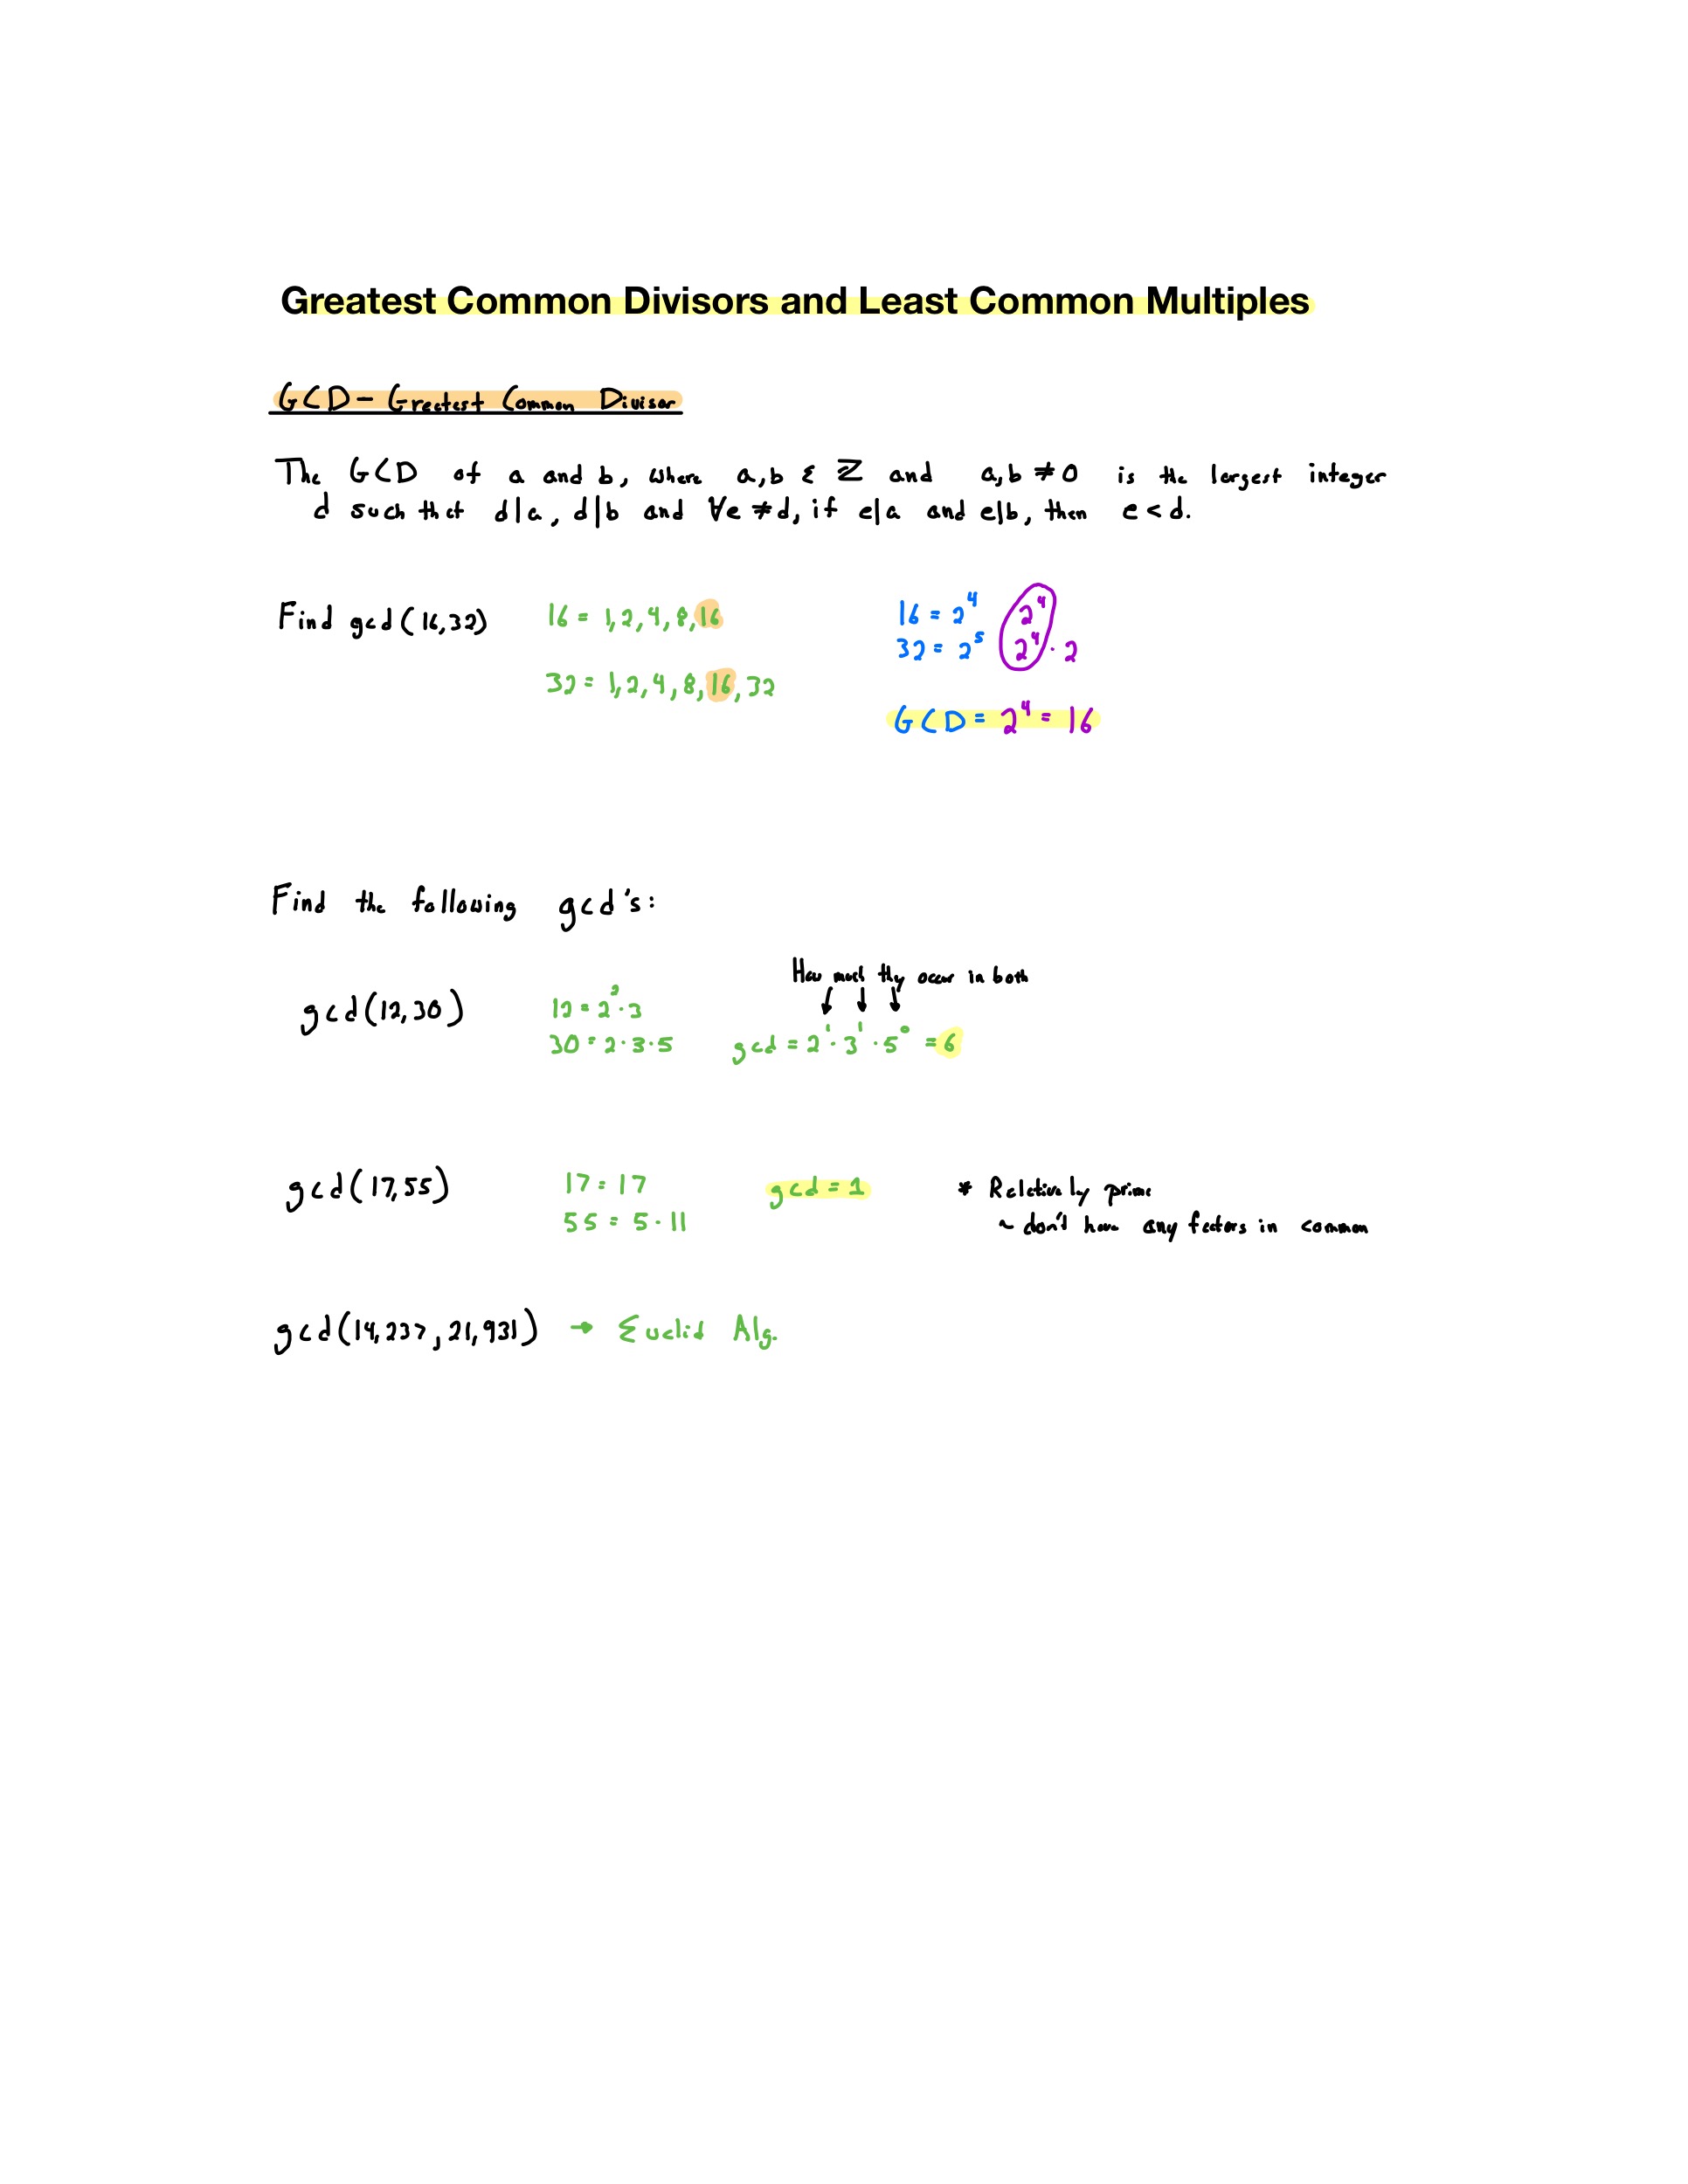 Greatest Common Divisors and Least Common Multiples
GCD - Greatest Common Divisor
The GCD of a and b, where a,b ε ℤ and a,b ≠ 0 is the largest integer
d such that d|a, d|b and ∀e ≠ d, if e|a and e|b, then e < d.
Find gcd(16,32)
16 = 1,2,4,8,16
32 = 1,2,4,8,16,32
16 = 2⁴ 2⁴
32 = 2⁵ 2⁴ · 2
GCD = 2⁴ = 16
Find the following gcd's:
How much they occur in both
↓ ↓ ↓
gcd(12,30)
12 = 2² · 3
30 = 2 · 3 · 5
gcd = 2¹ · 3¹ · 5⁰ = 6
gcd(17,55)
17 = 17
55 = 5 · 11
gcd = 1
* Relatively prime
~ don't have any factors in common
gcd(14,237, 21,931) → Euclid Alg.